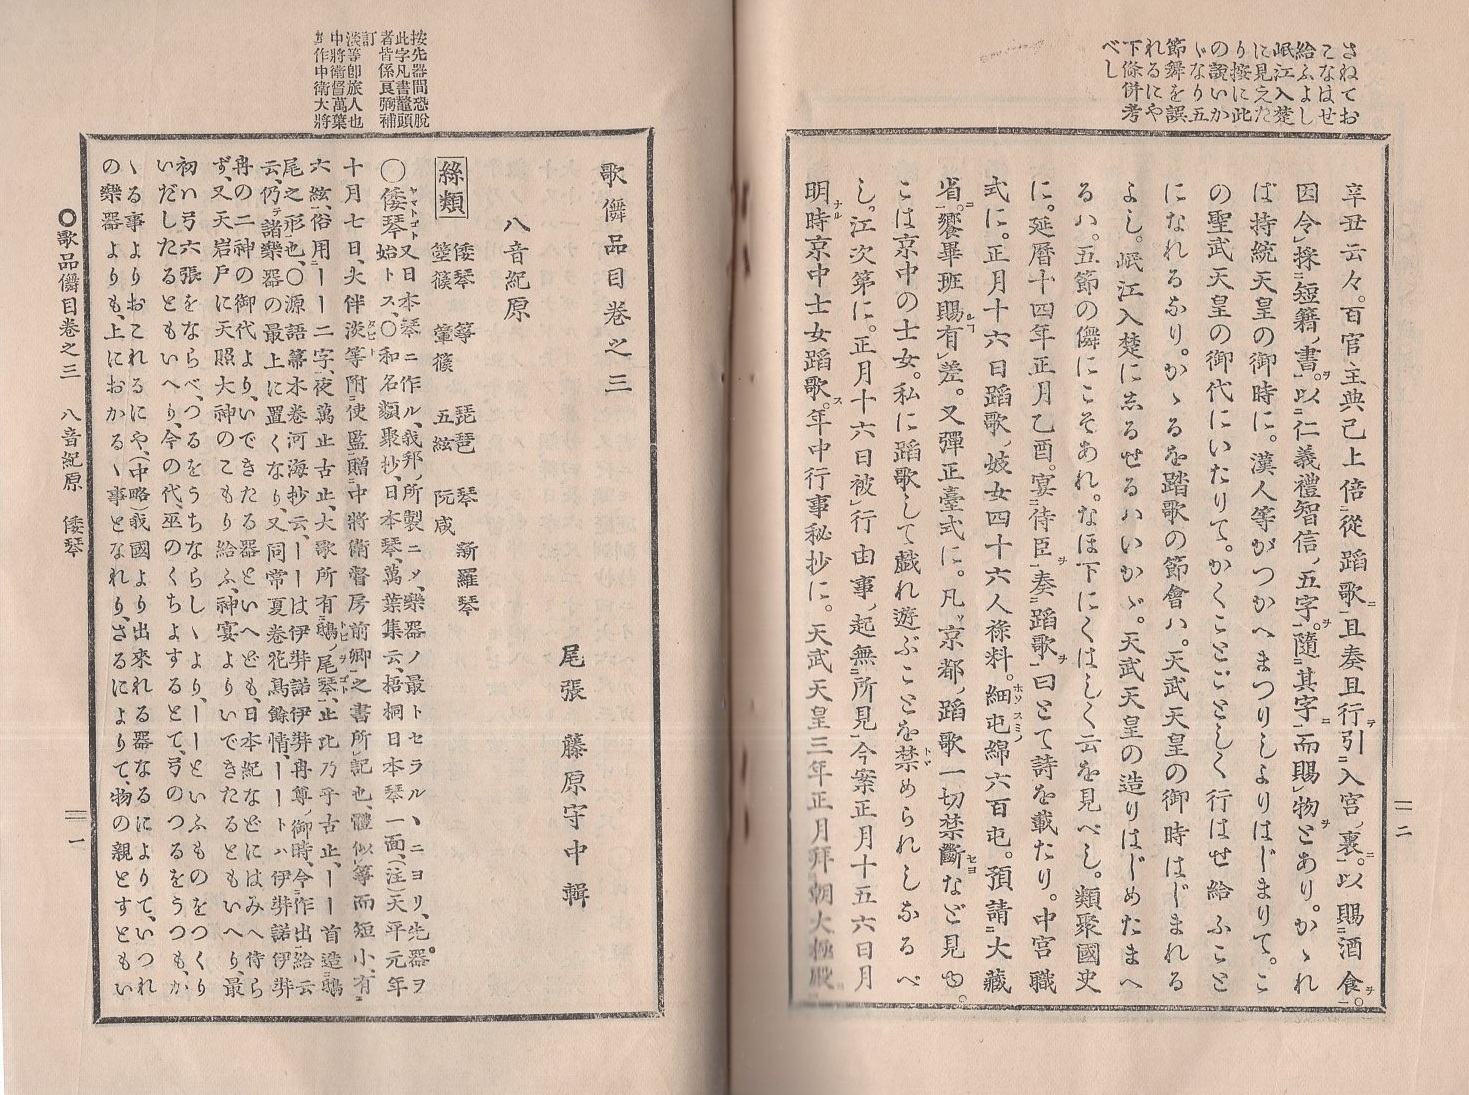 さねてお
こなはせ
給ふよし
岷江入楚
に見えた
り按に此
の説いか
ゞなり五
節舞を誤
れるにや
下條併考
べし
辛丑云々。百官主典已上倍從蹈歌且奏且行引入宮裏。以賜酒食。
因令採短籍書。以仁義禮智信五字。隨其字而賜物とあり。かゝれ
ば持統天皇の御時に。漢人等がつかへまつりしよりはじまりて。こ
の聖武天皇の御代にいたりて。かくことごとしく行はせ給ふこと
になれるなり。かゝるを踏歌の節會ハ。天武天皇の御時はじまれる
よし。岷江入楚に志るせるハいかゞ。天武天皇の造りはじめたまへ
るハ。五節の儛にこそあれ。なほ下にくはしく云を見べし。類聚國史
に。延暦十四年正月乙酉。宴侍臣奏蹈歌曰とて詩を載たり。中宮職
式に。正月十六日蹈歌妓女四十六人祿料。細屯綿六百屯。預請大藏
省饗畢班賜有差。又彈正臺式に。凡京都蹈歌一切禁斷など見ゆ。
こは京中の士女。私に蹈歌して戯れ遊ぶことを禁められしなるべ
し。江次第に。正月十六日被行由事起無所見今案正月十五六日月
明時京中士女蹈歌。年中行事秘抄に。天武天皇三年正月拜朝大極殿
二
按先器間恐脫
此字凡書鼇頭
者皆係眞彌補
訂
淡等卽旅人也
中將衛督萬葉
集作中衛大將
歌儛品目卷之三
尾張 藤原守中輯
八音紀原
絲類 倭琴 箏 琵琶 琴 新羅琴
箜篌 篳篌 五絃 阮咸
〇倭琴又日本琴ニ作ル、我邦ノ所製ニメ、樂器ノ最トセラルヽニヨリ、先器ヲ
始トス、〇和名類聚抄、日本琴、萬葉集云、梧桐日本琴一面、(注)天平元年
十月七日、大伴淡等附使監贈中將衛督房前卿之書所記也、體似箏而短小、有
六絃、俗用ーー二字、夜萬止古止、大歌所有鴟尾琴、止比乃乎古止、ーー首造鴟
尾之形也、〇源語箒木卷河海抄云、ーーは伊弉諾伊弉冉尊御時、令作出給云
云、仍諸樂器の最上に置くなり、又同常夏卷花鳥餘情、ーートハ伊弉諾伊弉
冉の二神の御代より、いできたる器といへども、日本紀などにはみへ侍ら
ず、又天岩戸に天照大神のこもり給ふ、神宴よりいできたるともいへり、最
初ハ弓六張をならべ、つるをうちならしゝより、ーーといふものをつくり
いだしたるともいへり、今の代、巫のくちよするとて、弓のつるをうつも、か
ゝる事よりおこれるにや、(中略)我國より出來れる器なるによりて、いつれ
の樂器よりも、上におかるゝ事となれり、さるによりて、物の親とすともい
〇歌品儛目卷之三 八音紀原 倭琴
一